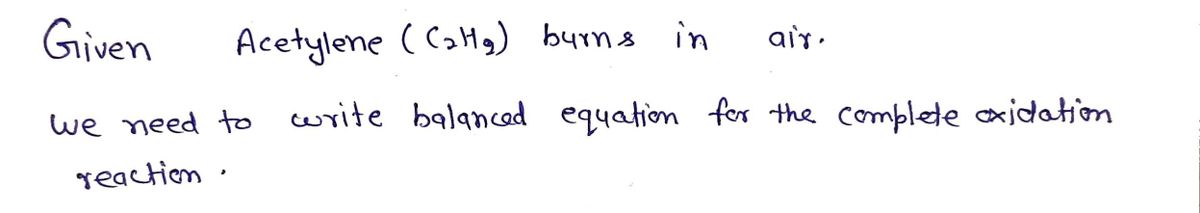 Given Acetylene (C₂H₂) burns in air.
we need to write balanced equation for the complete oxidation
reaction.